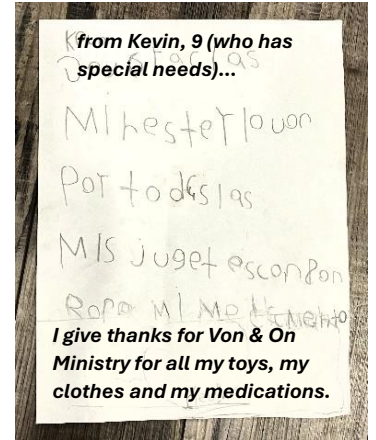 from Kevin, 9 (who has
special needs)...
MI hesterlo von
Por todas las
MIS juget escongon
Ropa MI
I give thanks for Von & On
Ministry for all my toys, my
clothes and my medications.